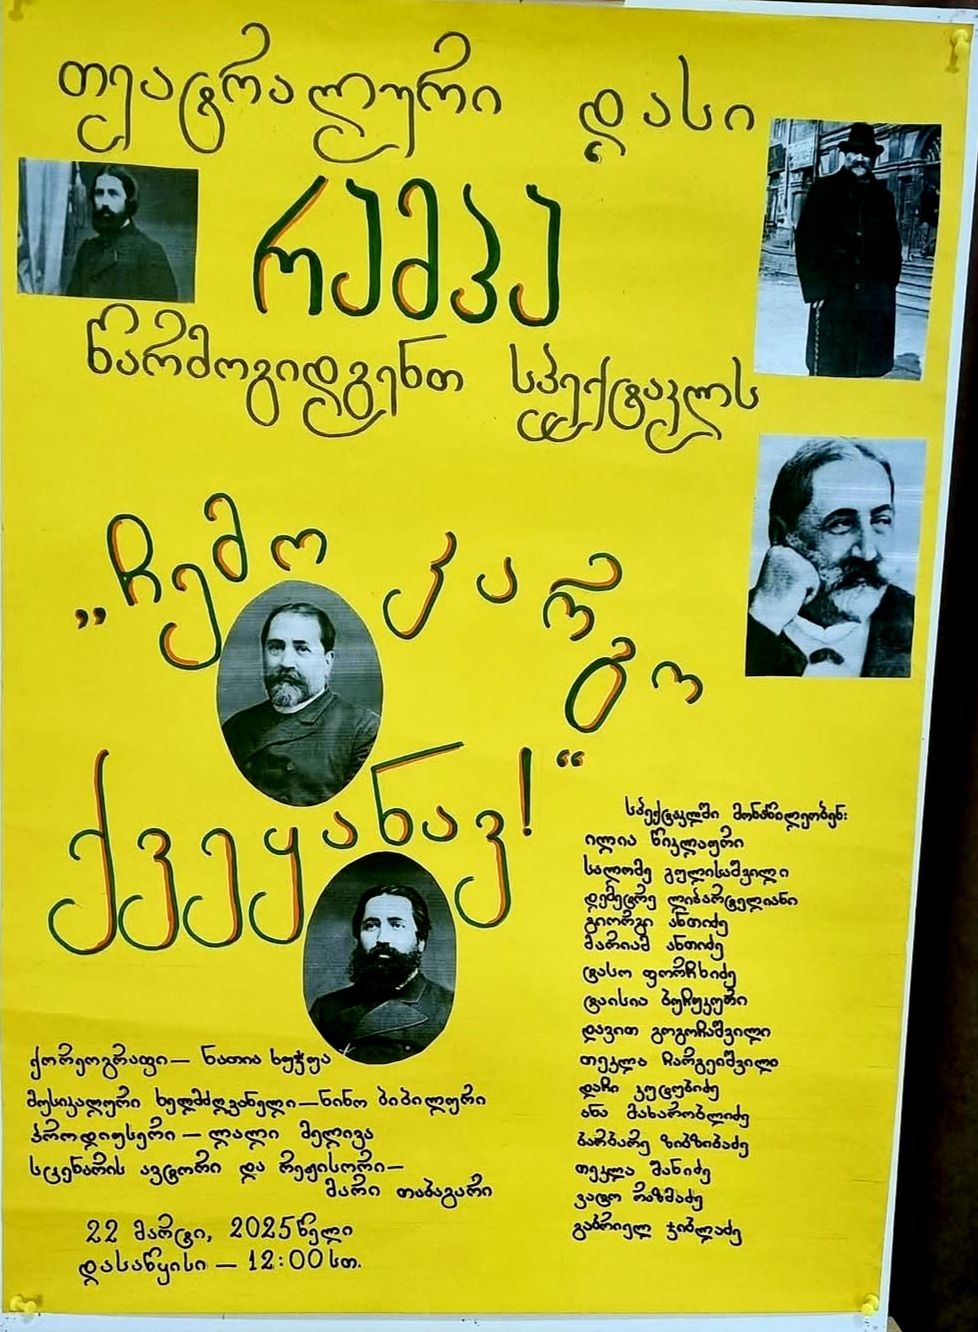 თეატრალური დასი
რამპა
წარმოგიდგენთ სპექტაკლს
„ჩემო კარგო
ქვეყანავ!“
სპექტაკლში მონაწილეობენ:
ილია წიკლაური
სალომე გულისაშვილი
დემეტრე ლიპარტელიანი
გიორგი ანთიძე
მარიამ ანთიძე
ტასო ფორჩხიძე
ტაისია ბუჩუკური
დავით გოგოჩაშვილი
თეკლა ჩარგეიშვილი
დაჩი კუცუბიძე
ანა მახარობლიძე
ბარბარე ზიბზიბაძე
თეკლა შანიძე
ვატო რაზმაძე
გაბრიელ ჯიბლაძე
ქორეოგრაფი — ნათია ხუჭუა
მუსიკალური ხელმძღვანელი — ნინო ბიბილური
პროდიუსერი — ლალი მელივა
სცენარის ავტორი და რეჟისორი —
მარი თაბაგარი
22 მარტი, 2025 წელი
დასაწყისი — 12:00 სთ.